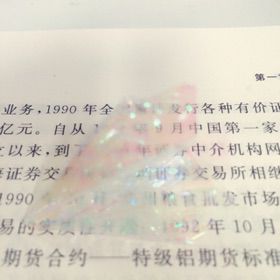 第一
业务，1990年全 发行各种有价证
亿元。自从1 年9月中国第一家
立以来，到 年 券中介机构网
证券交易 证券交易所相继
1990年 粮食批发市场
易的实质性 1992年10月
期货合约——特级铝期货标准